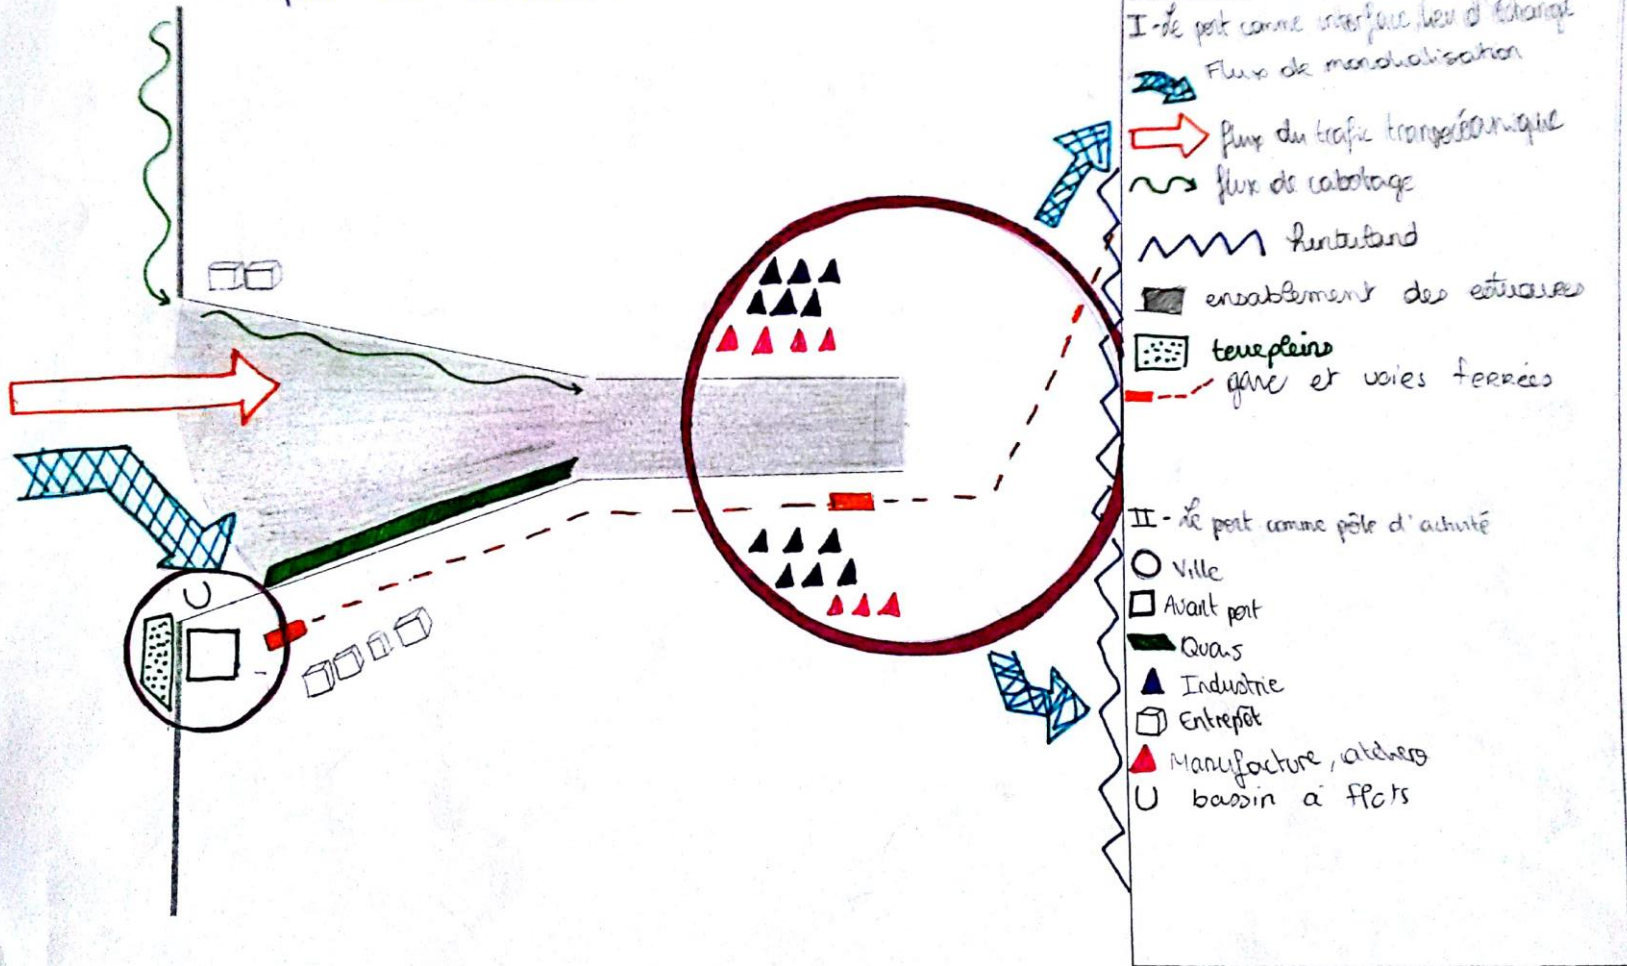 I - Le port comme interface, lieu d'échange
Flux de mondialisation
flux du trafic transocéanique
flux de cabotage
hinterland
ensablement des estuaires
terrepleins
gare et voies ferrées
II - Le port comme pôle d'activité
Ville
Avant port
Quais
Industrie
Entrepôt
Manufacture, ateliers
bassin à flots